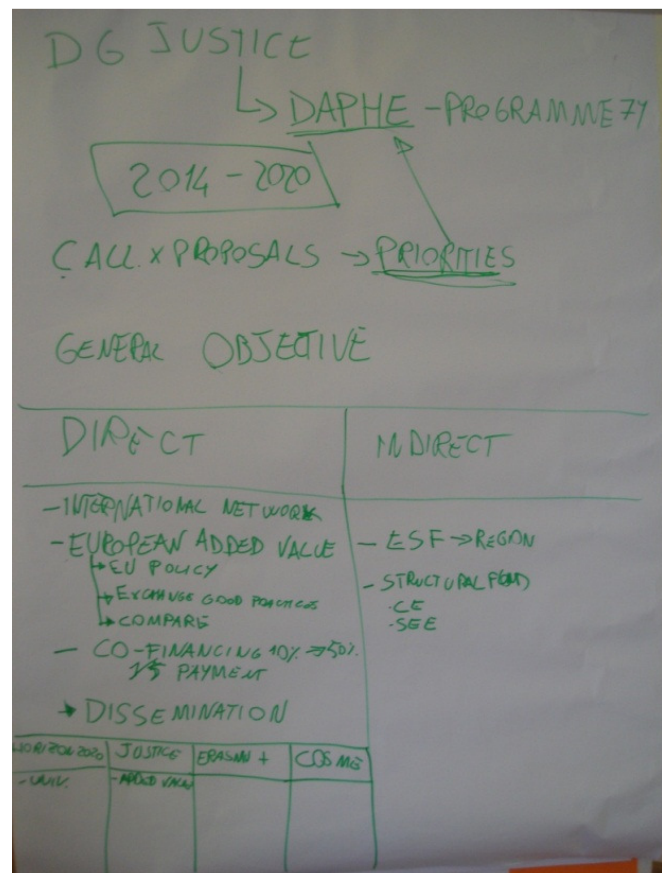 DG JUSTICE
↳ DAPHE - PROGRAMME 7Y
2014 - 2020
CALL x PROPOSALS → PRIORITIES
GENERAL OBJECTIVE
DIRECT
- INTERNATIONAL NETWORK
- EUROPEAN ADDED VALUE
↳ EU POLICY
↳ EXCHANGE GOOD PRACTICES
↳ COMPARE
- CO-FINANCING 10% → 50%
PAYMENT
→ DISSEMINATION
INDIRECT
- ESF → REGION
- STRUCTURAL FUND
· CE
· SEE
HORIZON 2020 JUSTICE ERASMU + COSME
- UNIV. - ADDED VALUE